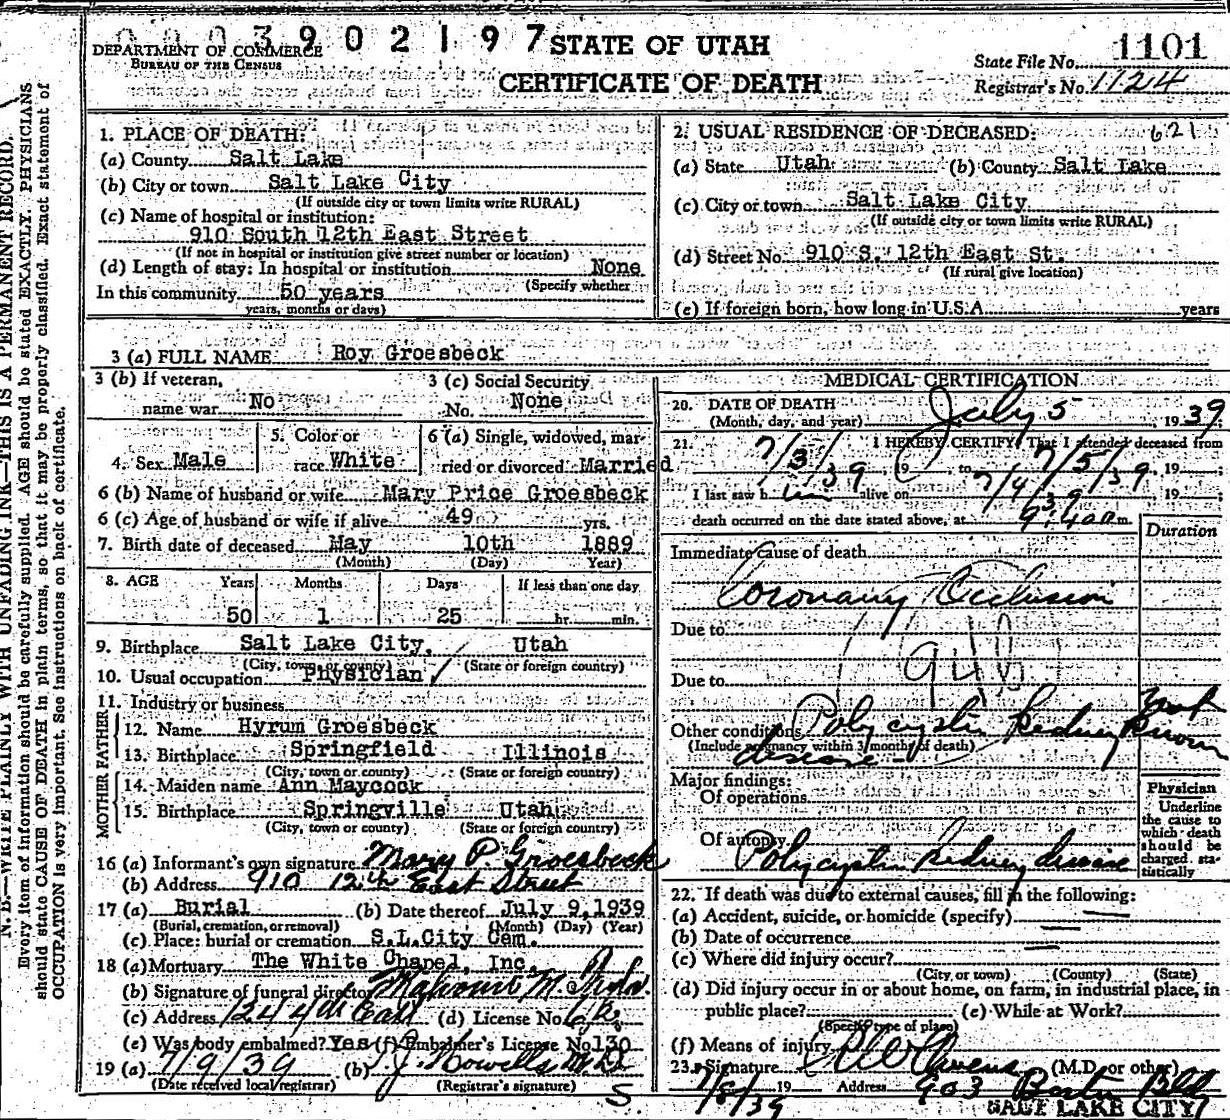 0003902197
DEPARTMENT OF COMMERCE
BUREAU OF THE CENSUS
STATE OF UTAH
CERTIFICATE OF DEATH
State File No. 1101
Registrar's No. 1124
N. B.—WRITE PLAINLY WITH UNFADING INK—THIS IS A PERMANENT RECORD.
Every item of information should be carefully supplied. AGE should be stated EXACTLY. PHYSICIANS
should state CAUSE OF DEATH in plain terms, so that it may be properly classified. Exact statement of
OCCUPATION is very important. See instructions on back of certificate.
1. PLACE OF DEATH:
(a) County Salt Lake
(b) City or town Salt Lake City
(If outside city or town limits write RURAL)
(c) Name of hospital or institution:
910 South 12th East Street
(If not in hospital or institution give street number or location)
(d) Length of stay: In hospital or institution None
(Specify whether
In this community 50 years
years, months or days)
2. USUAL RESIDENCE OF DECEASED: 621
(a) State Utah (b) County Salt Lake
(c) City or town Salt Lake City
(If outside city or town limits write RURAL)
(d) Street No. 910 S. 12th East St.
(If rural give location)
(e) If foreign born, how long in U.S.A. years
3 (a) FULL NAME Roy Groesbeck
3 (b) If veteran, name war No
3 (c) Social Security No. None
4. Sex Male
5. Color or race White
6 (a) Single, widowed, married or divorced Married
6 (b) Name of husband or wife Mary Price Groesbeck
6 (c) Age of husband or wife if alive 49 yrs.
7. Birth date of deceased May 10th 1889
(Month) (Day) (Year)
8. AGE Years Months Days If less than one day
50 1 25 hr. min.
9. Birthplace Salt Lake City, Utah
(City, town, or county) (State or foreign country)
10. Usual occupation Physician
11. Industry or business
FATHER
12. Name Hyrum Groesbeck
13. Birthplace Springfield Illinois
(City, town or county) (State or foreign country)
MOTHER
14. Maiden name Ann Maycock
15. Birthplace Springville Utah
(City, town or county) (State or foreign country)
16 (a) Informant's own signature Mary P. Groesbeck
(b) Address 910 12th East Street
17 (a) Burial (b) Date thereof July 9, 1939
(Burial, cremation, or removal) (Month) (Day) (Year)
(c) Place: burial or cremation S.L.City Cem.
18 (a) Mortuary The White Chapel, Inc.
(b) Signature of funeral director M.
(c) Address 124 4th East (d) License No.
(e) Was body embalmed? Yes (f) Embalmer's License No. 130
19 (a) 7/9/39 (b) J. Howells M.D.
(Date received local registrar) (Registrar's signature)
S
MEDICAL CERTIFICATION
20. DATE OF DEATH July 5, 1939
(Month, day, and year)
21. I HEREBY CERTIFY, That I attended deceased from
7/3/39 19 to 7/5/39, 19
I last saw him alive on 7/4/39, 19
death occurred on the date stated above, at 9:40 a m.
Duration
Immediate cause of death
Coronary Occlusion
Due to
94b
Due to
Other conditions Polycystic Kidney disease Not Known
(Include pregnancy within 3 months of death)
Major findings:
Of operations
Of autopsy Polycystic Kidney disease
Physician
Underline
the cause to
which death
should be
charged sta-
tistically
22. If death was due to external causes, fill in the following:
(a) Accident, suicide, or homicide (specify)
(b) Date of occurrence
(c) Where did injury occur?
(City or town) (County) (State)
(d) Did injury occur in or about home, on farm, in industrial place, in
public place? (e) While at Work?
(Specify type of place)
(f) Means of injury
23. Signature Owens (M.D. or other)
7/8/39 19 Address 903 Boston Bldg
SALT LAKE CITY